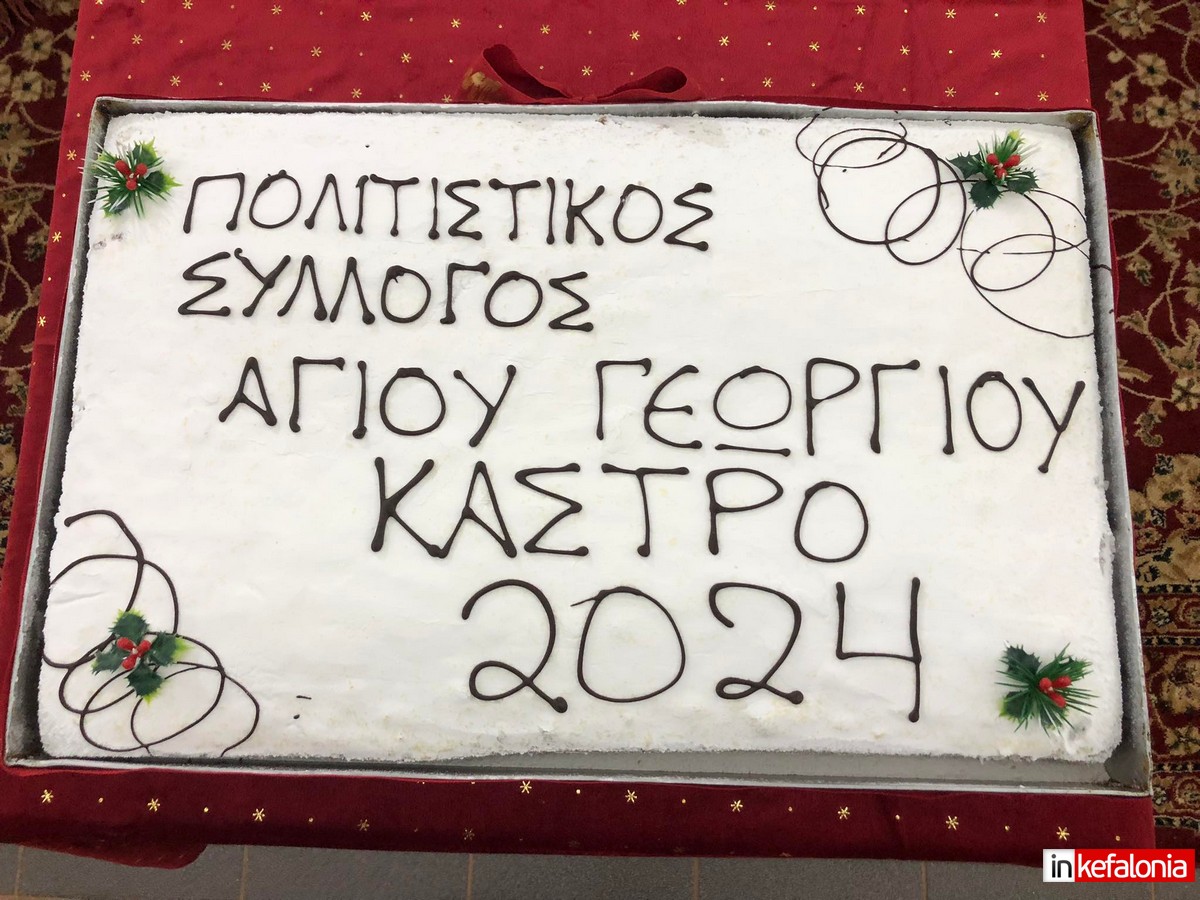 ΠΟΛΙΤΙΣΤΙΚΟΣ
ΣΥΛΛΟΓΟΣ
ΑΓΙΟΥ ΓΕΩΡΓΙΟΥ
ΚΑΣΤΡΟ
2024
inkefalonia